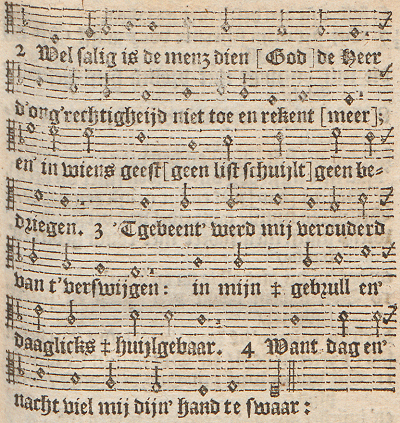 2 Wel salig is de menz dien [God] de Heer
d'ong'rechtigheijd niet toe en rekent [meer];
en' in wiens geest [geen list schuijlt] geen be⸗
driegen. 3 'Tgebeent' werd mij verouderd
van t'verswijgen: in mijn ‡ gebrull en'
daaglicks ‡ huijlgebaar. 4 Want dag en'
nacht viel mij dijn' hand te swaar: